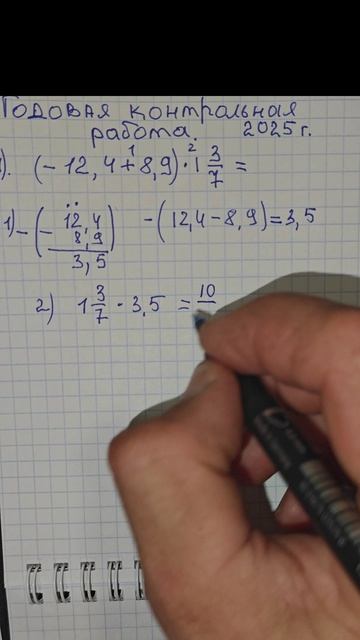 Годовая контрольная
работа. 2025г.
1 2
). (-12,4+8,9)·1 3/7 =
1) -(12,4 - 8,9) 3,5 -(12,4-8,9)=3,5
2) 1 3/7 · 3,5 = 10